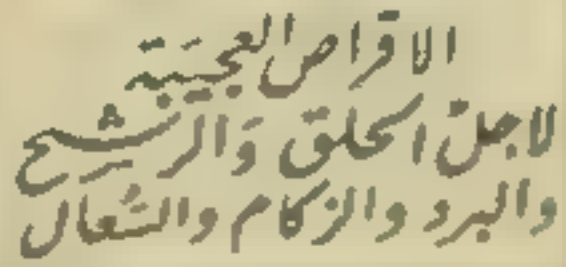 الاقراص العجيبة
لاجل الحلق والرشح
والبرد والزكام والسعال